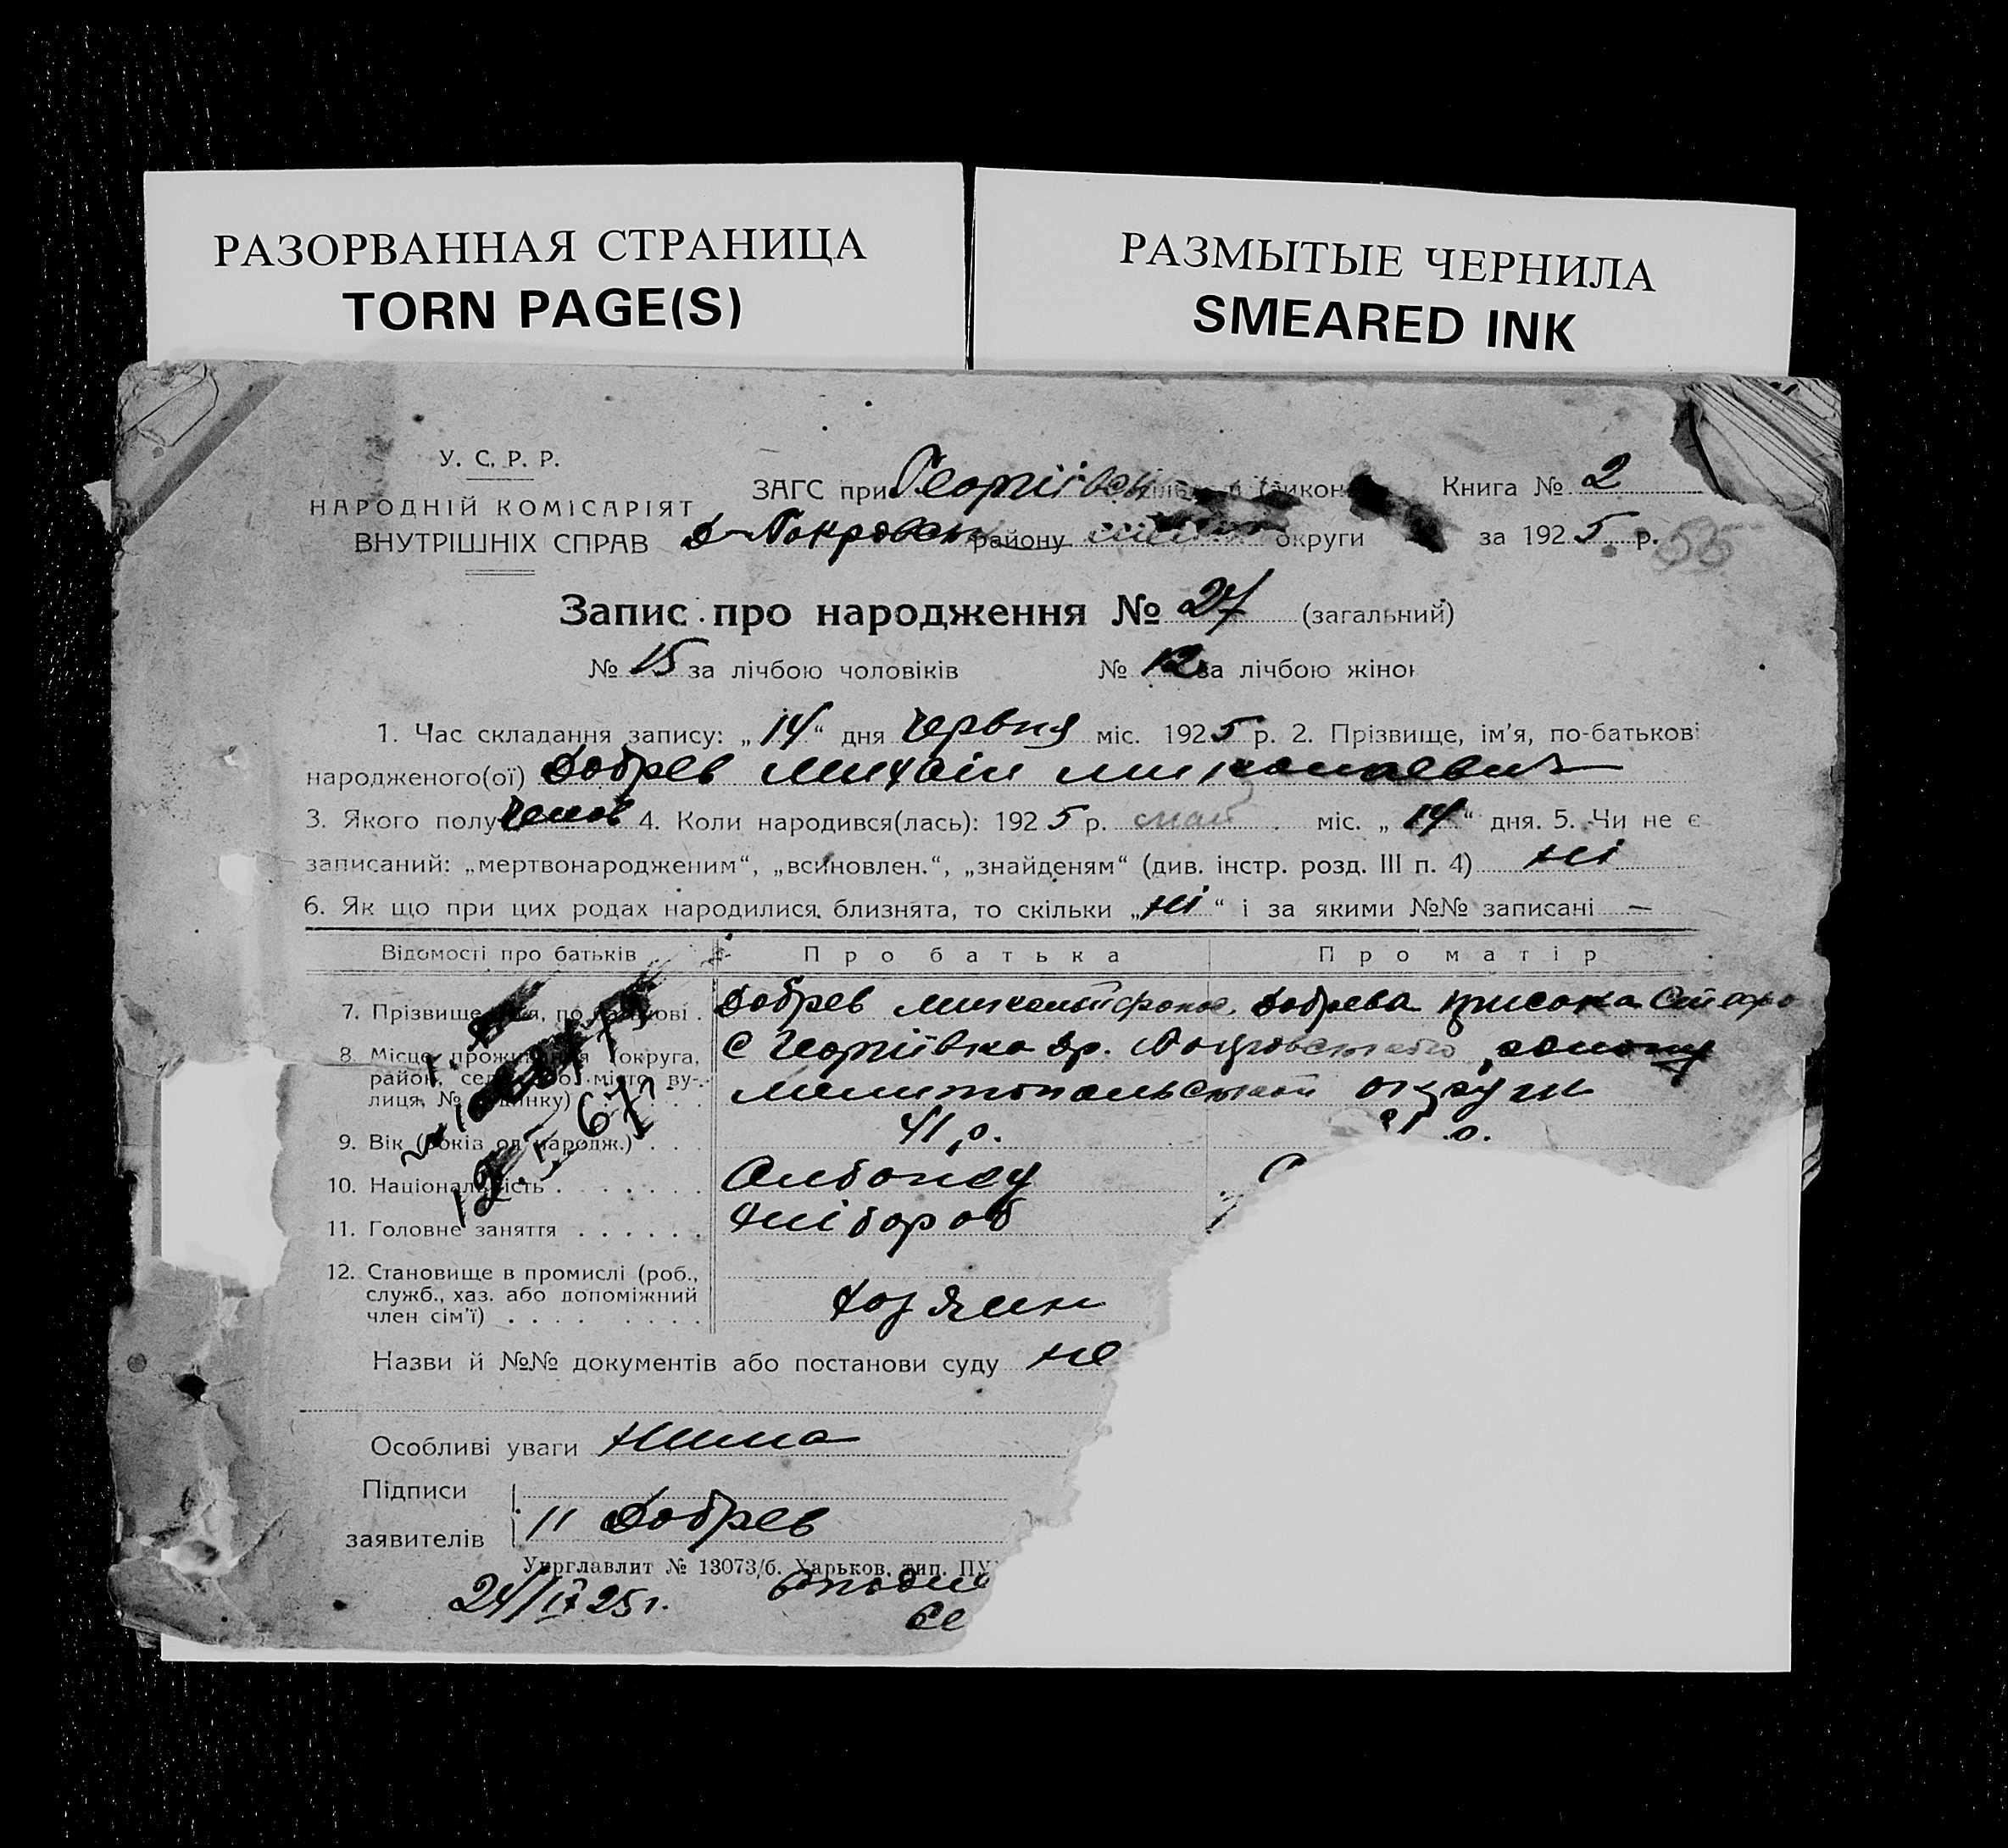 РАЗОРВАННАЯ СТРАНИЦА
TORN PAGE(S)
РАЗМЫТЫЕ ЧЕРНИЛА
SMEARED INK
У. С. Р. Р.
НАРОДНІЙ КОМІСАРІЯТ
ВНУТРІШНІХ СПРАВ
ЗАГС при Георгіївськ
району округи
Книга № 2
за 1925 р.
55
Запис про народження № 27 (загальний)
№ 15 за лічбою чоловіків № 12 за лічбою жінок
1. Час складання запису: „14“ дня червня міс. 1925 р. 2. Прізвище, ім’я, по-батькові
народженого(ої) Добрев Михаіл
3. Якого полу Чолов 4. Коли народився(лась): 1925 р. май міс. „14“ дня. 5. Чи не є
записаний: „мертвонародженим“, „всиновлен.“, „знайденям“ (див. інстр. розд. III п. 4) Ні
6. Як що при цих родах народилися близнята, то скільки „Ні“ і за якими №№ записані —
Відомості про батьків Про батька Про матір
7. Прізвище по Добрев Добрева
8. Місце округа, с Георгіївка
район, місто, ву-
лиця, № Мелитопольської округи
9. Вік (років од народж.) 41 р. р.
10. Національність Албонец
11. Головне заняття Хлібороб
12. Становище в промислі (роб.,
служб., хаз. або допоміжний
член сім’ї) Хозяин
Назви й №№ документів або постанови суду не
Особливі уваги Нима
Підписи
заявителів Добрев
Укрглавлит № 13073/б. Харьков, тип. ПУ
24/IX 25 г.